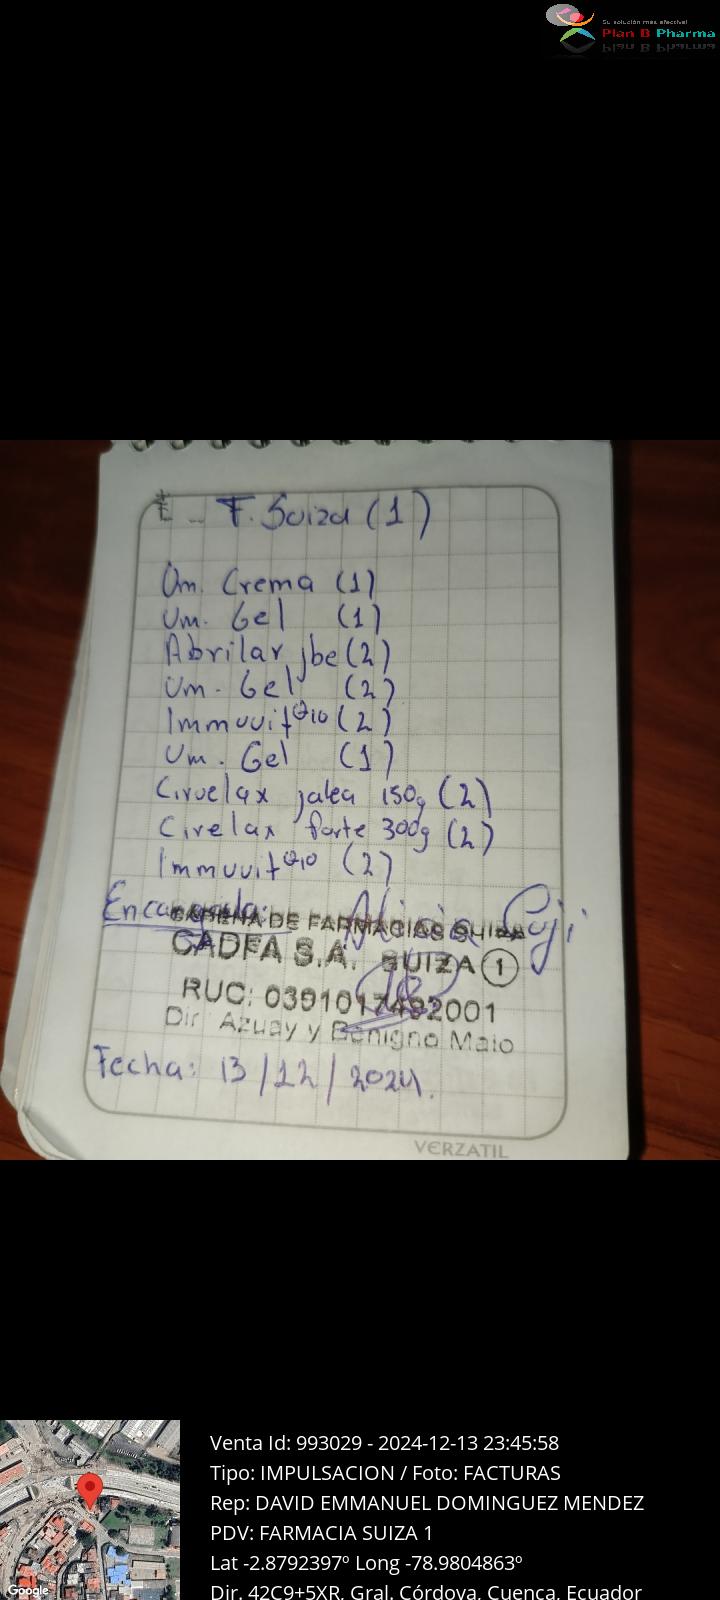 Su solución más efectiva!
Plan B Pharma
F. Suiza (1)
Um. Crema (1)
Um. Gel (1)
Abrilar jbe (2)
Um. Gel (2)
Immuvit Q10 (2)
Um. Gel (1)
Ciruelax jalea 150g (2)
Cirelax forte 300g (2)
Immuvit Q10 (2)
Encargada: Alicia
CADENA DE FARMACIAS SUIZA
CADFA S.A. SUIZA 1
RUC: 0391017492001
Dir: Azuay y Benigno Malo
Fecha: 13/12/2024.
VERZATIL
Google
Venta Id: 993029 - 2024-12-13 23:45:58
Tipo: IMPULSACION / Foto: FACTURAS
Rep: DAVID EMMANUEL DOMINGUEZ MENDEZ
PDV: FARMACIA SUIZA 1
Lat -2.8792397º Long -78.9804863º
Dir. 42C9+5XR, Gral. Córdova, Cuenca, Ecuador